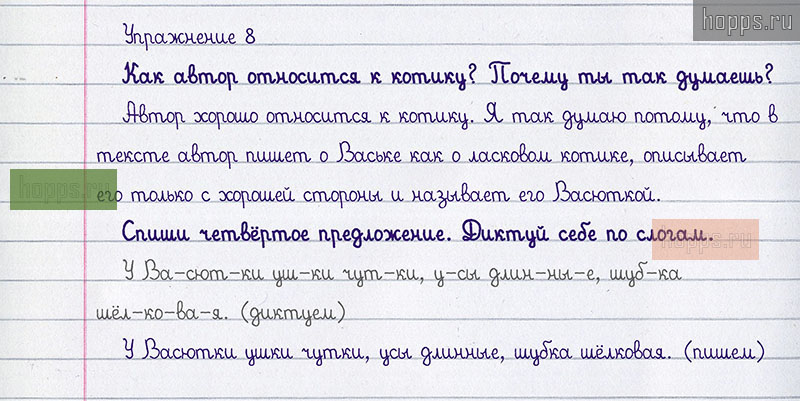 hopps.ru
Упражнение 8
Как автор относится к котику? Почему ты так думаешь?
Автор хорошо относится к котику. Я так думаю потому, что в
тексте автор пишет о Ваське как о ласковом котике, описывает
hopps.ru
его только с хорошей стороны и называет его Васюткой.
Спиши четвёртое предложение. Диктуй себе по слогам.
hopps.ru
У Ва-сют-ки уш-ки чут-ки, у-сы длин-ны-е, шуб-ка
шёл-ко-ва-я. (диктуем)
У Васютки ушки чутки, усы длинные, шубка шёлковая. (пишем)